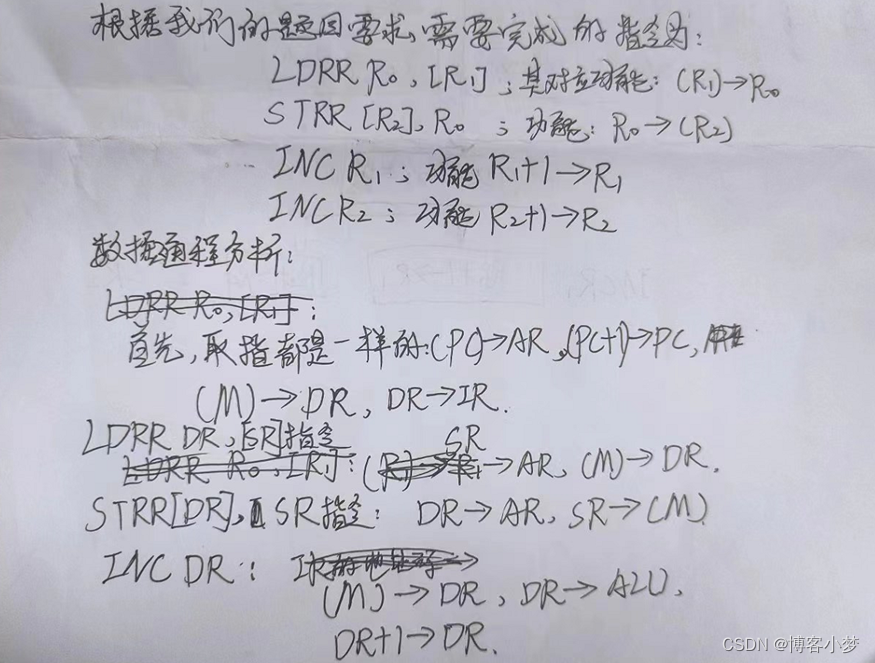 根据我们的题目要求,需要完成的指令为:
LDRR R0, [R1] ;其对应功能: (R1)→R0
STRR [R2], R0 ; 功能: R0→(R2)
INC R1 ; 功能 R1+1→R1
INC R2 ; 功能 R2+1→R2
数据通程分析:
LDRR R0, [R1] :
首先,取指都是一样的:(PC)→AR,(PC+1)→PC,
(M)→DR, DR→IR.
LDRR DR, [SR]指令
LDRR R0, [R1] : SR→AR, (M)→DR.
STRR[DR], SR指令: DR→AR, SR→(M)
INC DR :
(M)→DR, DR→ALU,
DR+1→DR.
CSDN @博客小梦